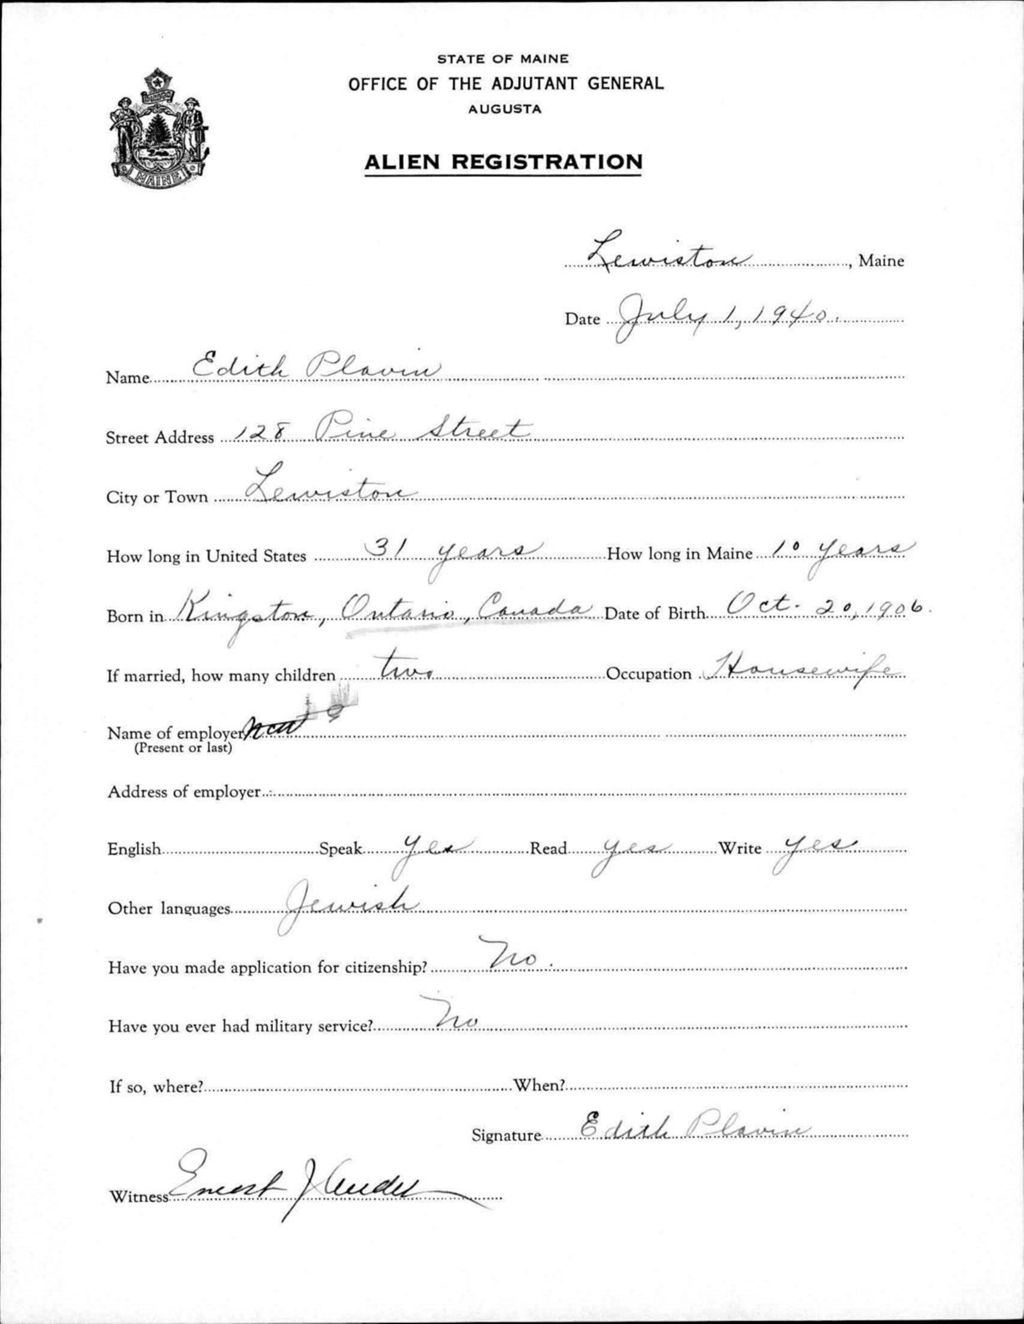 STATE OF MAINE
OFFICE OF THE ADJUTANT GENERAL
AUGUSTA
ALIEN REGISTRATION
MAINE
Lewiston, Maine
Date July 1, 1940.
Name Edith Plavin
Street Address 128 Pine Street
City or Town Lewiston
How long in United States 31 years How long in Maine 10 years
Born in Kingston, Ontario, Canada Date of Birth Oct. 20, 1906.
If married, how many children two Occupation Housewife
Name of employer
(Present or last)
Address of employer
English Speak Yes Read yes Write yes
Other languages Jewish
Have you made application for citizenship? No.
Have you ever had military service? No
If so, where? When?
Signature Edith Plavin
Witness Ernest J